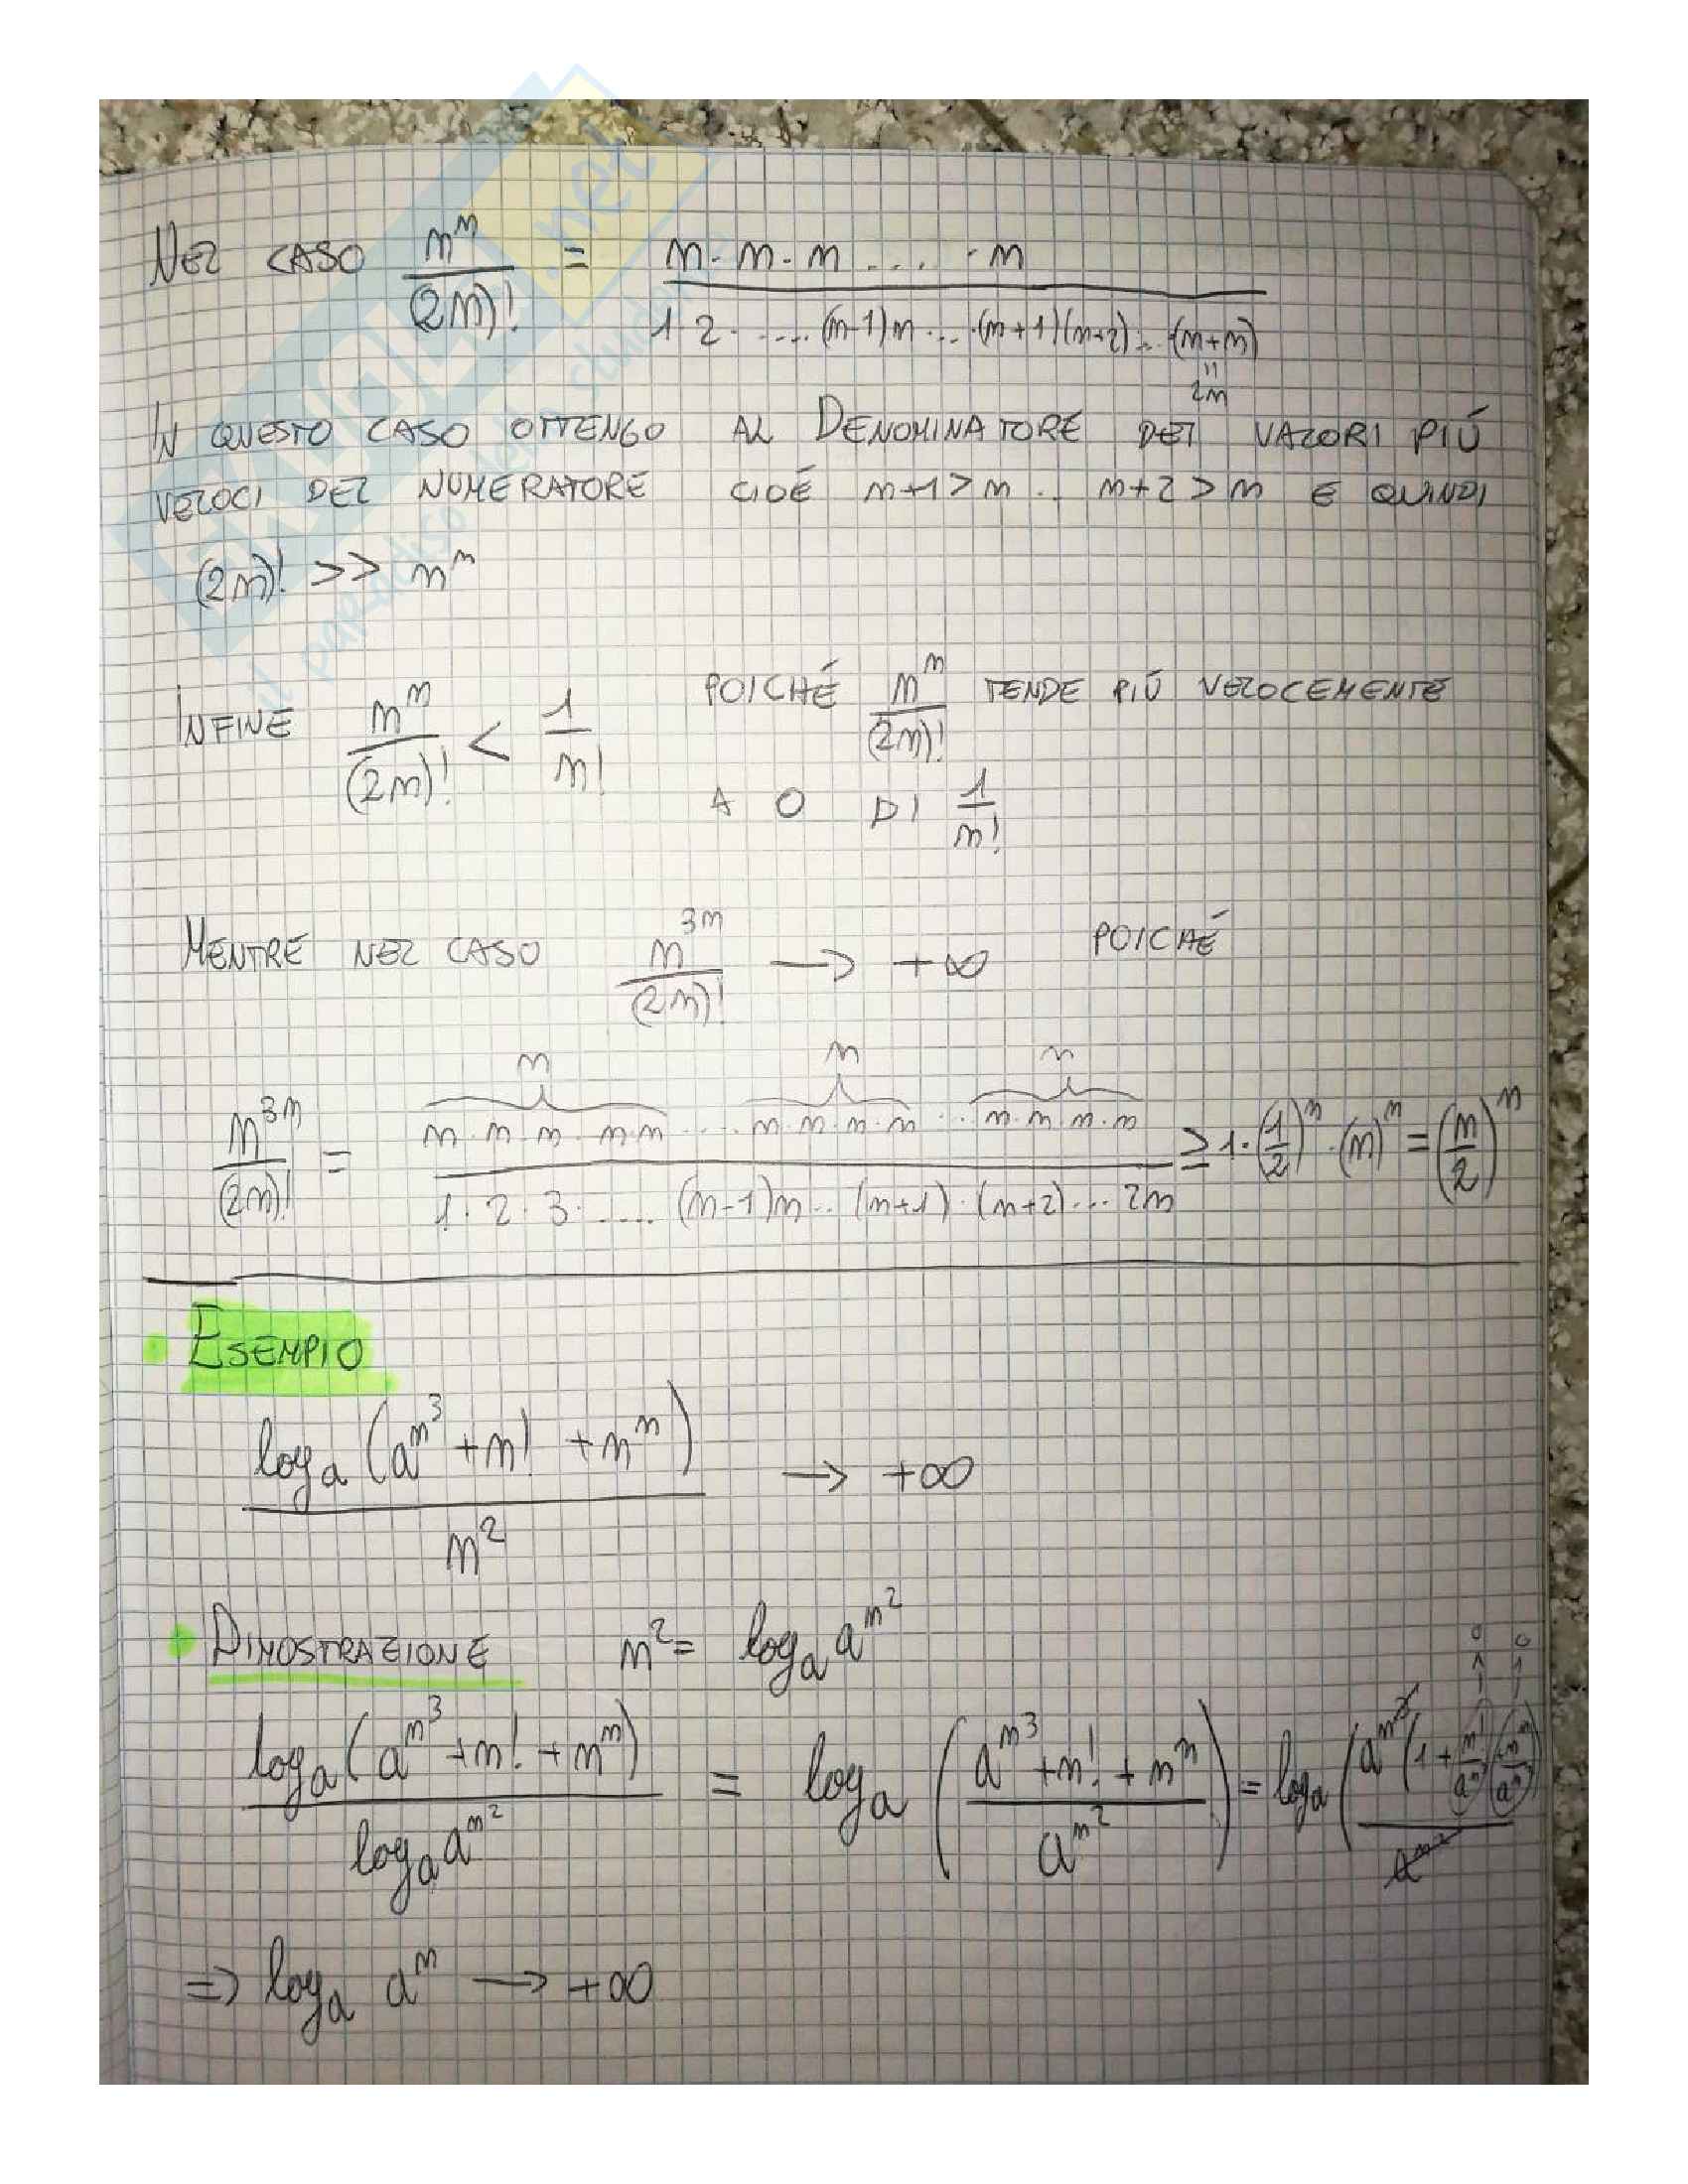 NEL CASO n^n/(2n)! = n·n·n ... ·n / 1·2· .... (n-1)n ... ·(n+1)(n+2) ... ·(n+n)
"
2n
IN QUESTO CASO OTTENGO AL DENOMINATORE DEI VALORI PIÙ
VELOCI DEL NUMERATORE CIOÉ n+1>n .. n+2>n E QUINDI
(2n)! >> n^n
INFINE n^n/(2n)! < 1/n! POICHÉ n^n/(2n)! TENDE PIÙ VELOCEMENTE
A 0 DI 1/n!
MENTRE NEL CASO n^3n/(2n)! → +∞ POICHÉ
n n n
n^3n/(2n)! = n·n·n·n·n ... n·n·n·n ... n·n·n·n / 1·2·3· .... (n-1)n ... (n+1)·(n+2) ... 2n ≥ 1·(1/2)^n·(n)^n = (n/2)^n
• ESEMPIO
log_a (a^n^3 + n! + n^n) / n^2 → +∞
• DIMOSTRAZIONE n^2 = log_a a^n^2
log_a (a^n^3 + n! + n^n) / log_a a^n^2 = log_a ((a^n^3 + n! + n^n) / a^n^2) = log_a (a^n^3 (1 + n!/a^n + n^n/a^n) / a^n^2)
⇒ log_a a^n → +∞